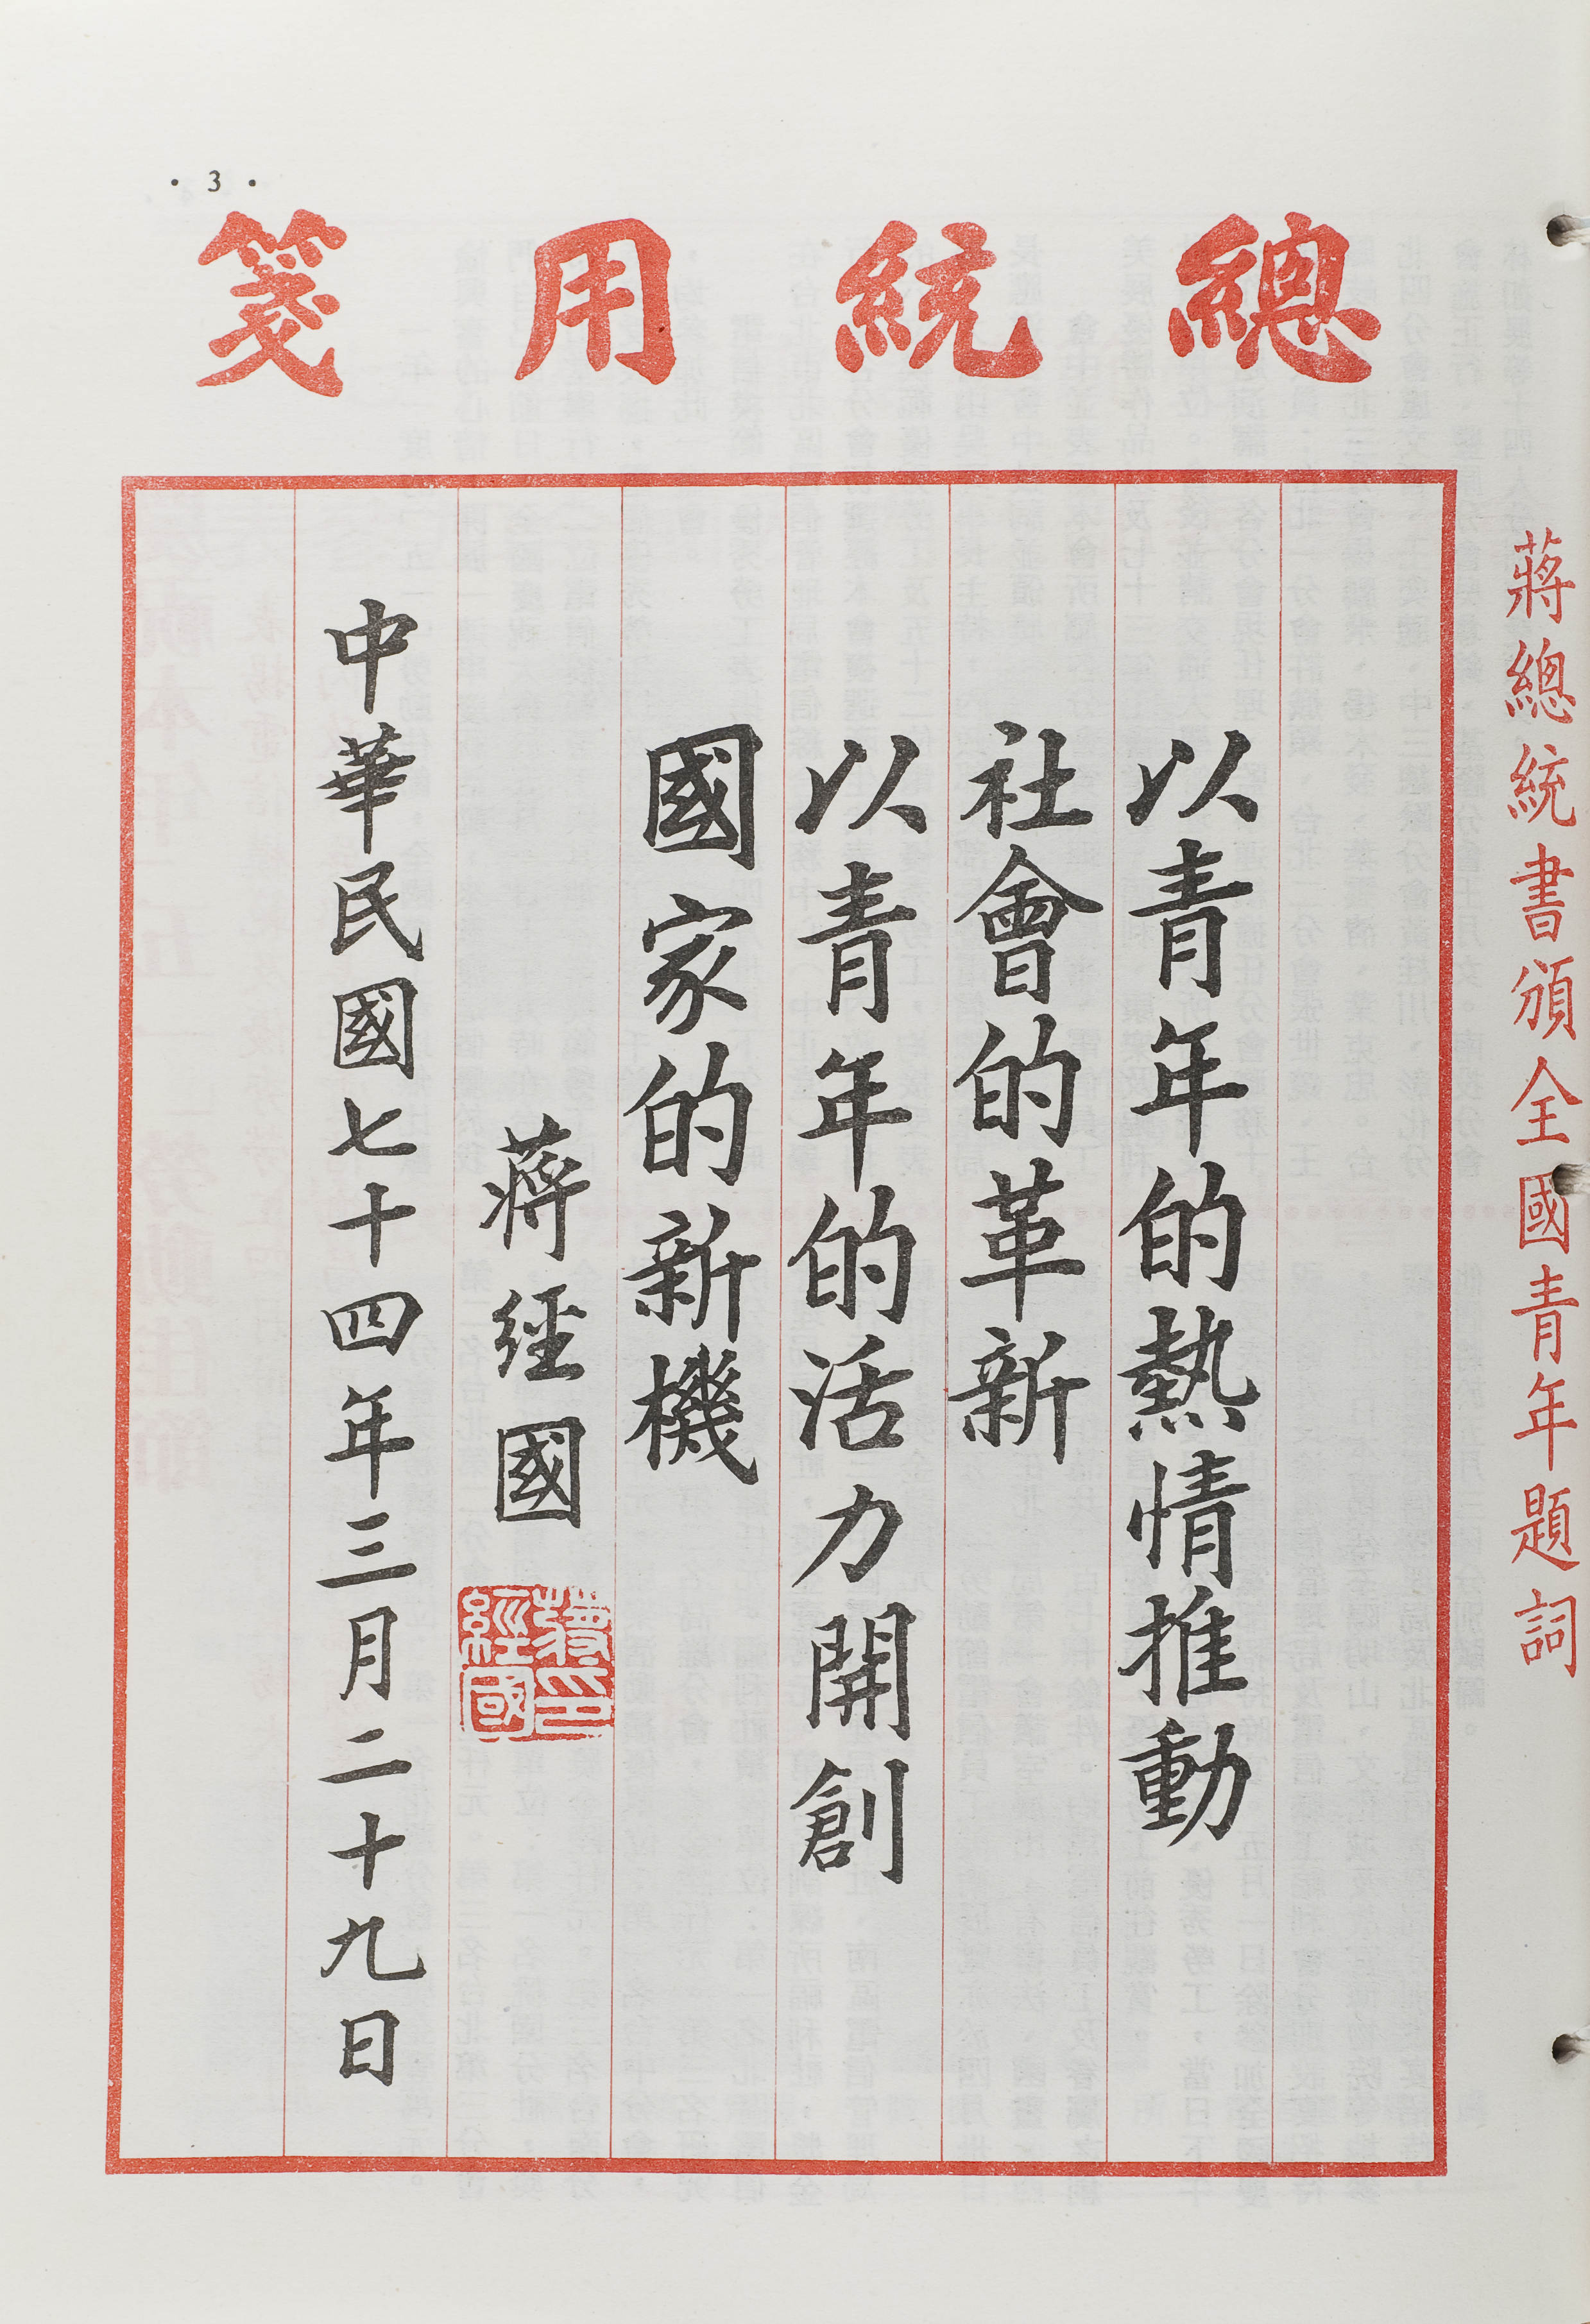 · 3 ·
總統用箋
蔣總統書頒全國青年題詞
以青年的熱情推動
社會的革新
以青年的活力開創
國家的新機
蔣經國
蔣經國印
中華民國七十四年三月二十九日